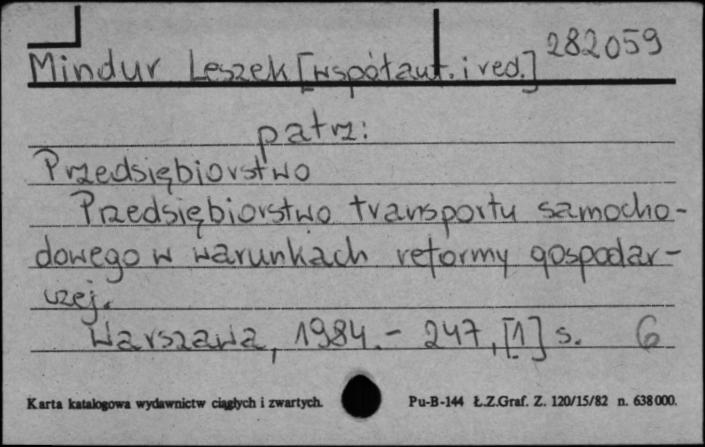 Mindur Leszek [współaut. i red.] 282059
patrz:
Przedsiębiorstwo
Przedsiębiorstwo transportu samocho-
dowego w warunkach reformy gospodar-
czej.
Warszawa, 1984. - 247, [1] s. 6
Karta katalogowa wydawnictw ciągłych i zwartych. Pu-B-144 Ł.Z.Graf. Z. 120/15/82 n. 638000.